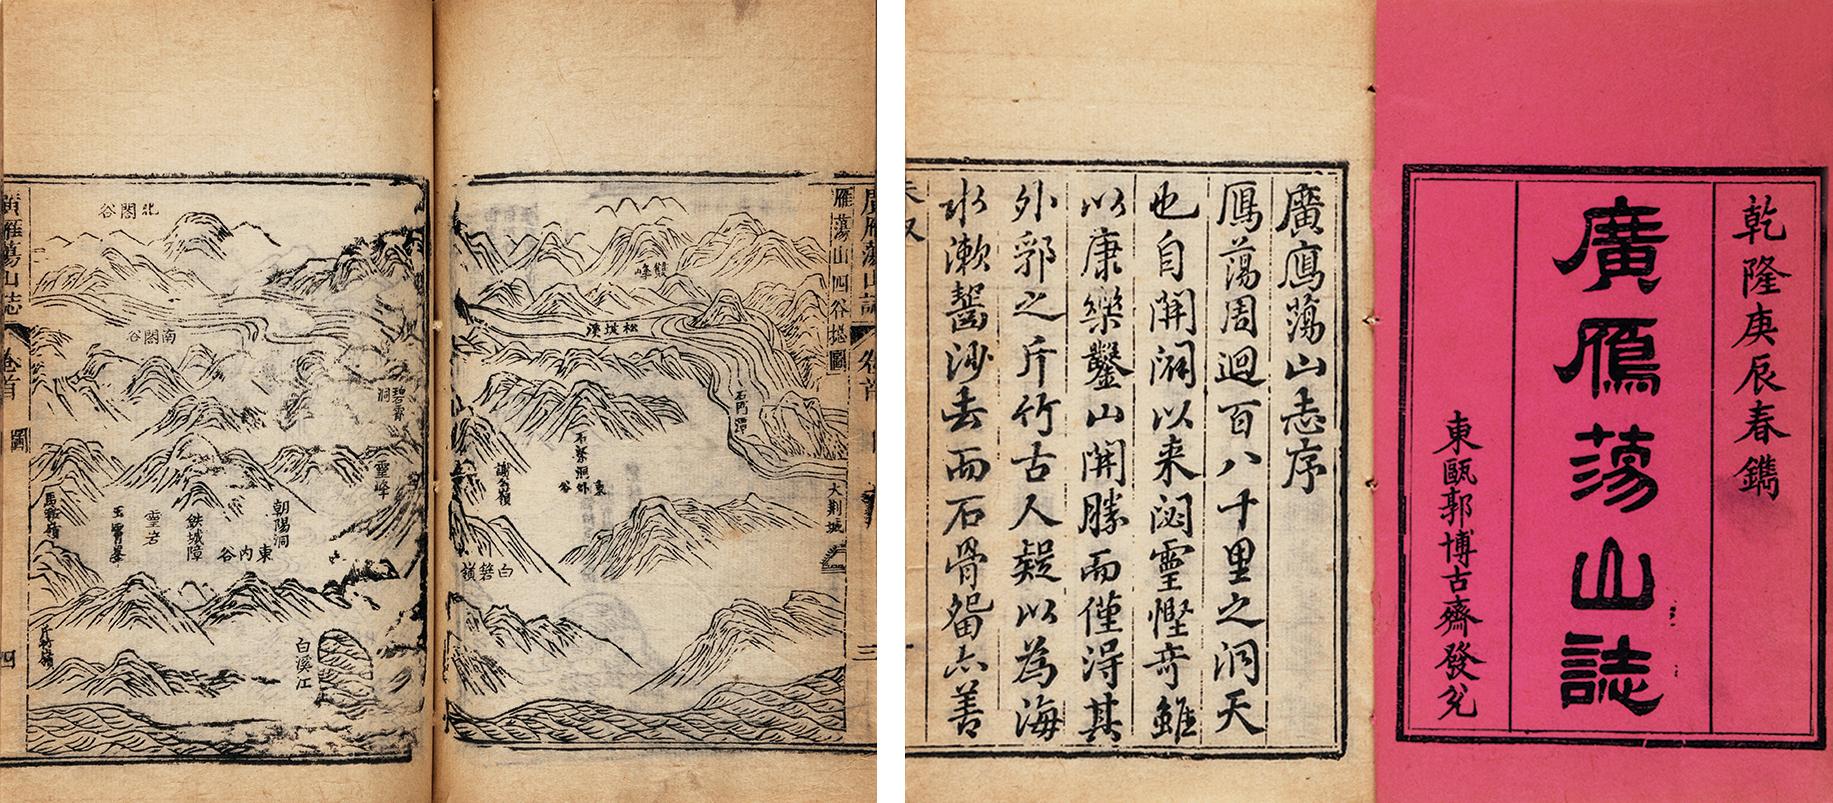 乾隆庚辰春鐫
廣鴈蕩山誌
東甌郭博古齋發兌
廣鴈蕩山志序
鴈蕩周迴百八十里之洞天
也自開闢以来閟靈慳奇雖
以康樂鑿山開勝而僅淂其
外郛之斤竹古人疑以為海
水漱齧沙去而石骨留亦善
廣雁蕩山誌
卷首
三
雁蕩山四谷揔圖
松坡潭
石門潭
大荆城
石梁洞
東外谷
謝公嶺
白箬嶺
廣雁蕩山誌
卷首
圖
四
北閣谷
南閣谷
碧霄洞
靈峰
朝陽洞
東内谷
鉄城障
靈岩
玉霄峯
馬鞍嶺
斤竹嶺
白溪江